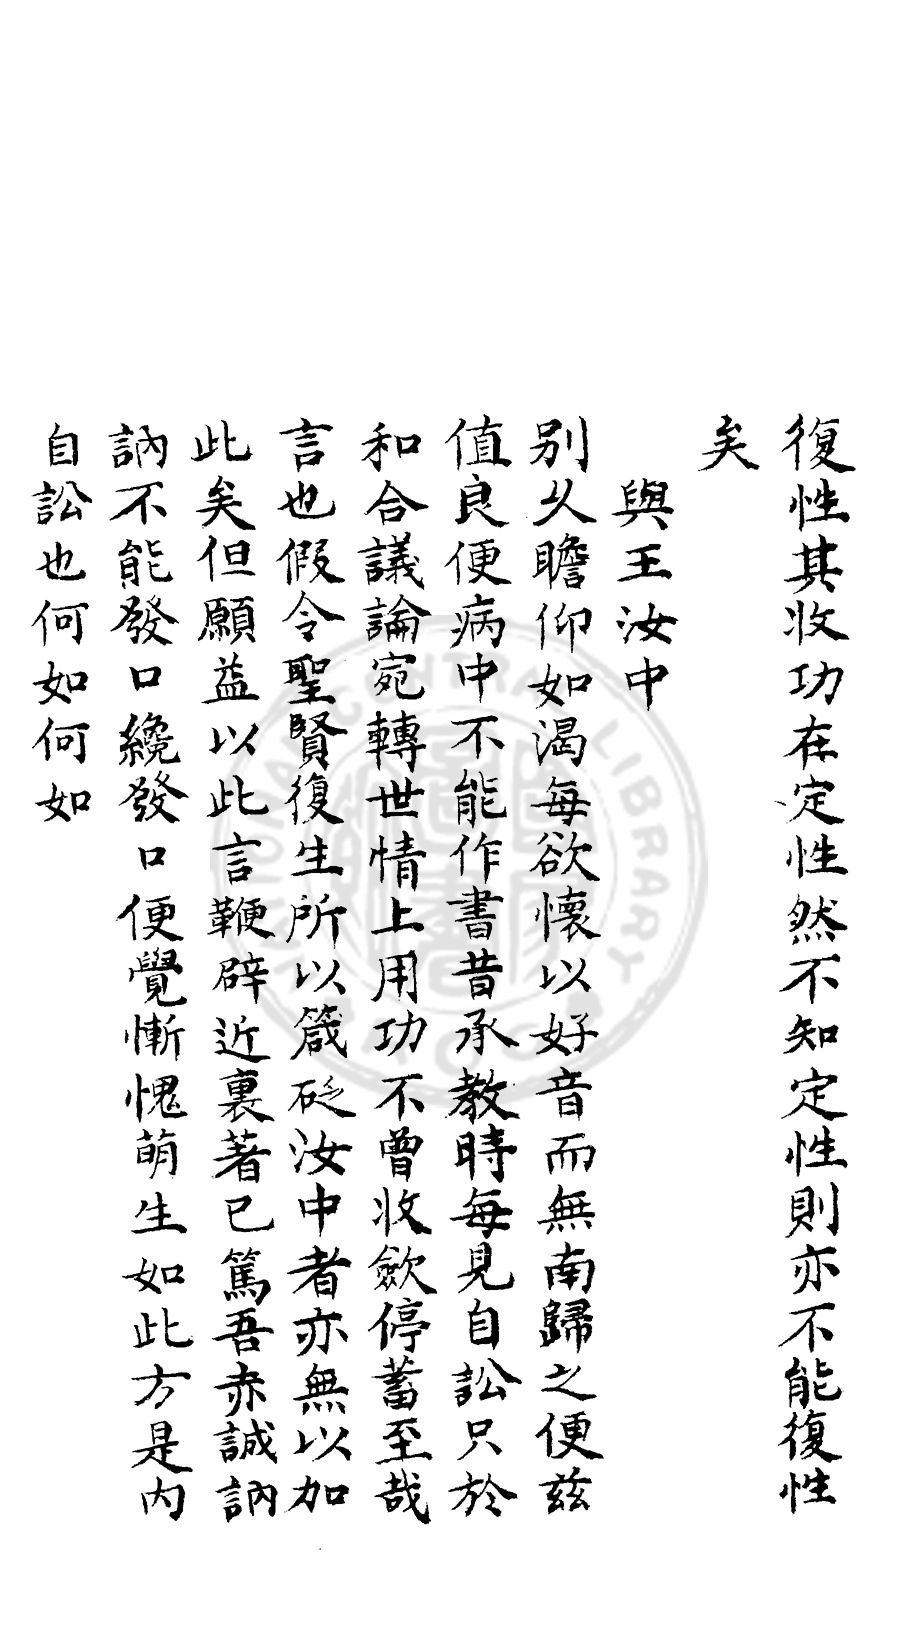 復性其收功在定性然不知定性則亦不能復性
矣
與王汝中
別久瞻仰如渴每欲懷以好音而無南歸之便兹
值良便病中不能作書昔承教時每見自訟只於
和合議論宛轉世情上用功不曾收歛停蓄至哉
言也假令聖賢復生所以箴砭汝中者亦無以加
此矣但願益以此言鞭辟近裏著已篤吾赤誠訥
訥不能發口纔發口便覺慚愧萌生如此方是內
自訟也何如何如
NATIONAL CENTRAL LIBRARY